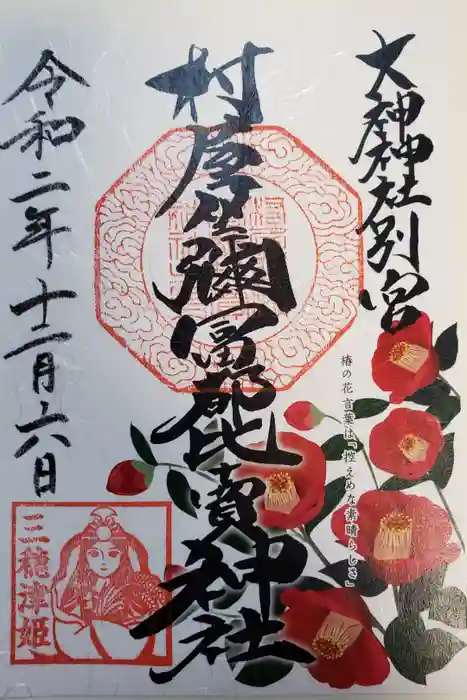 大神神社別宮
椿の花言葉は「控えめな素晴らしさ」
村屋坐彌冨都比賣神社
令和二年十二月六日
三穂津姫